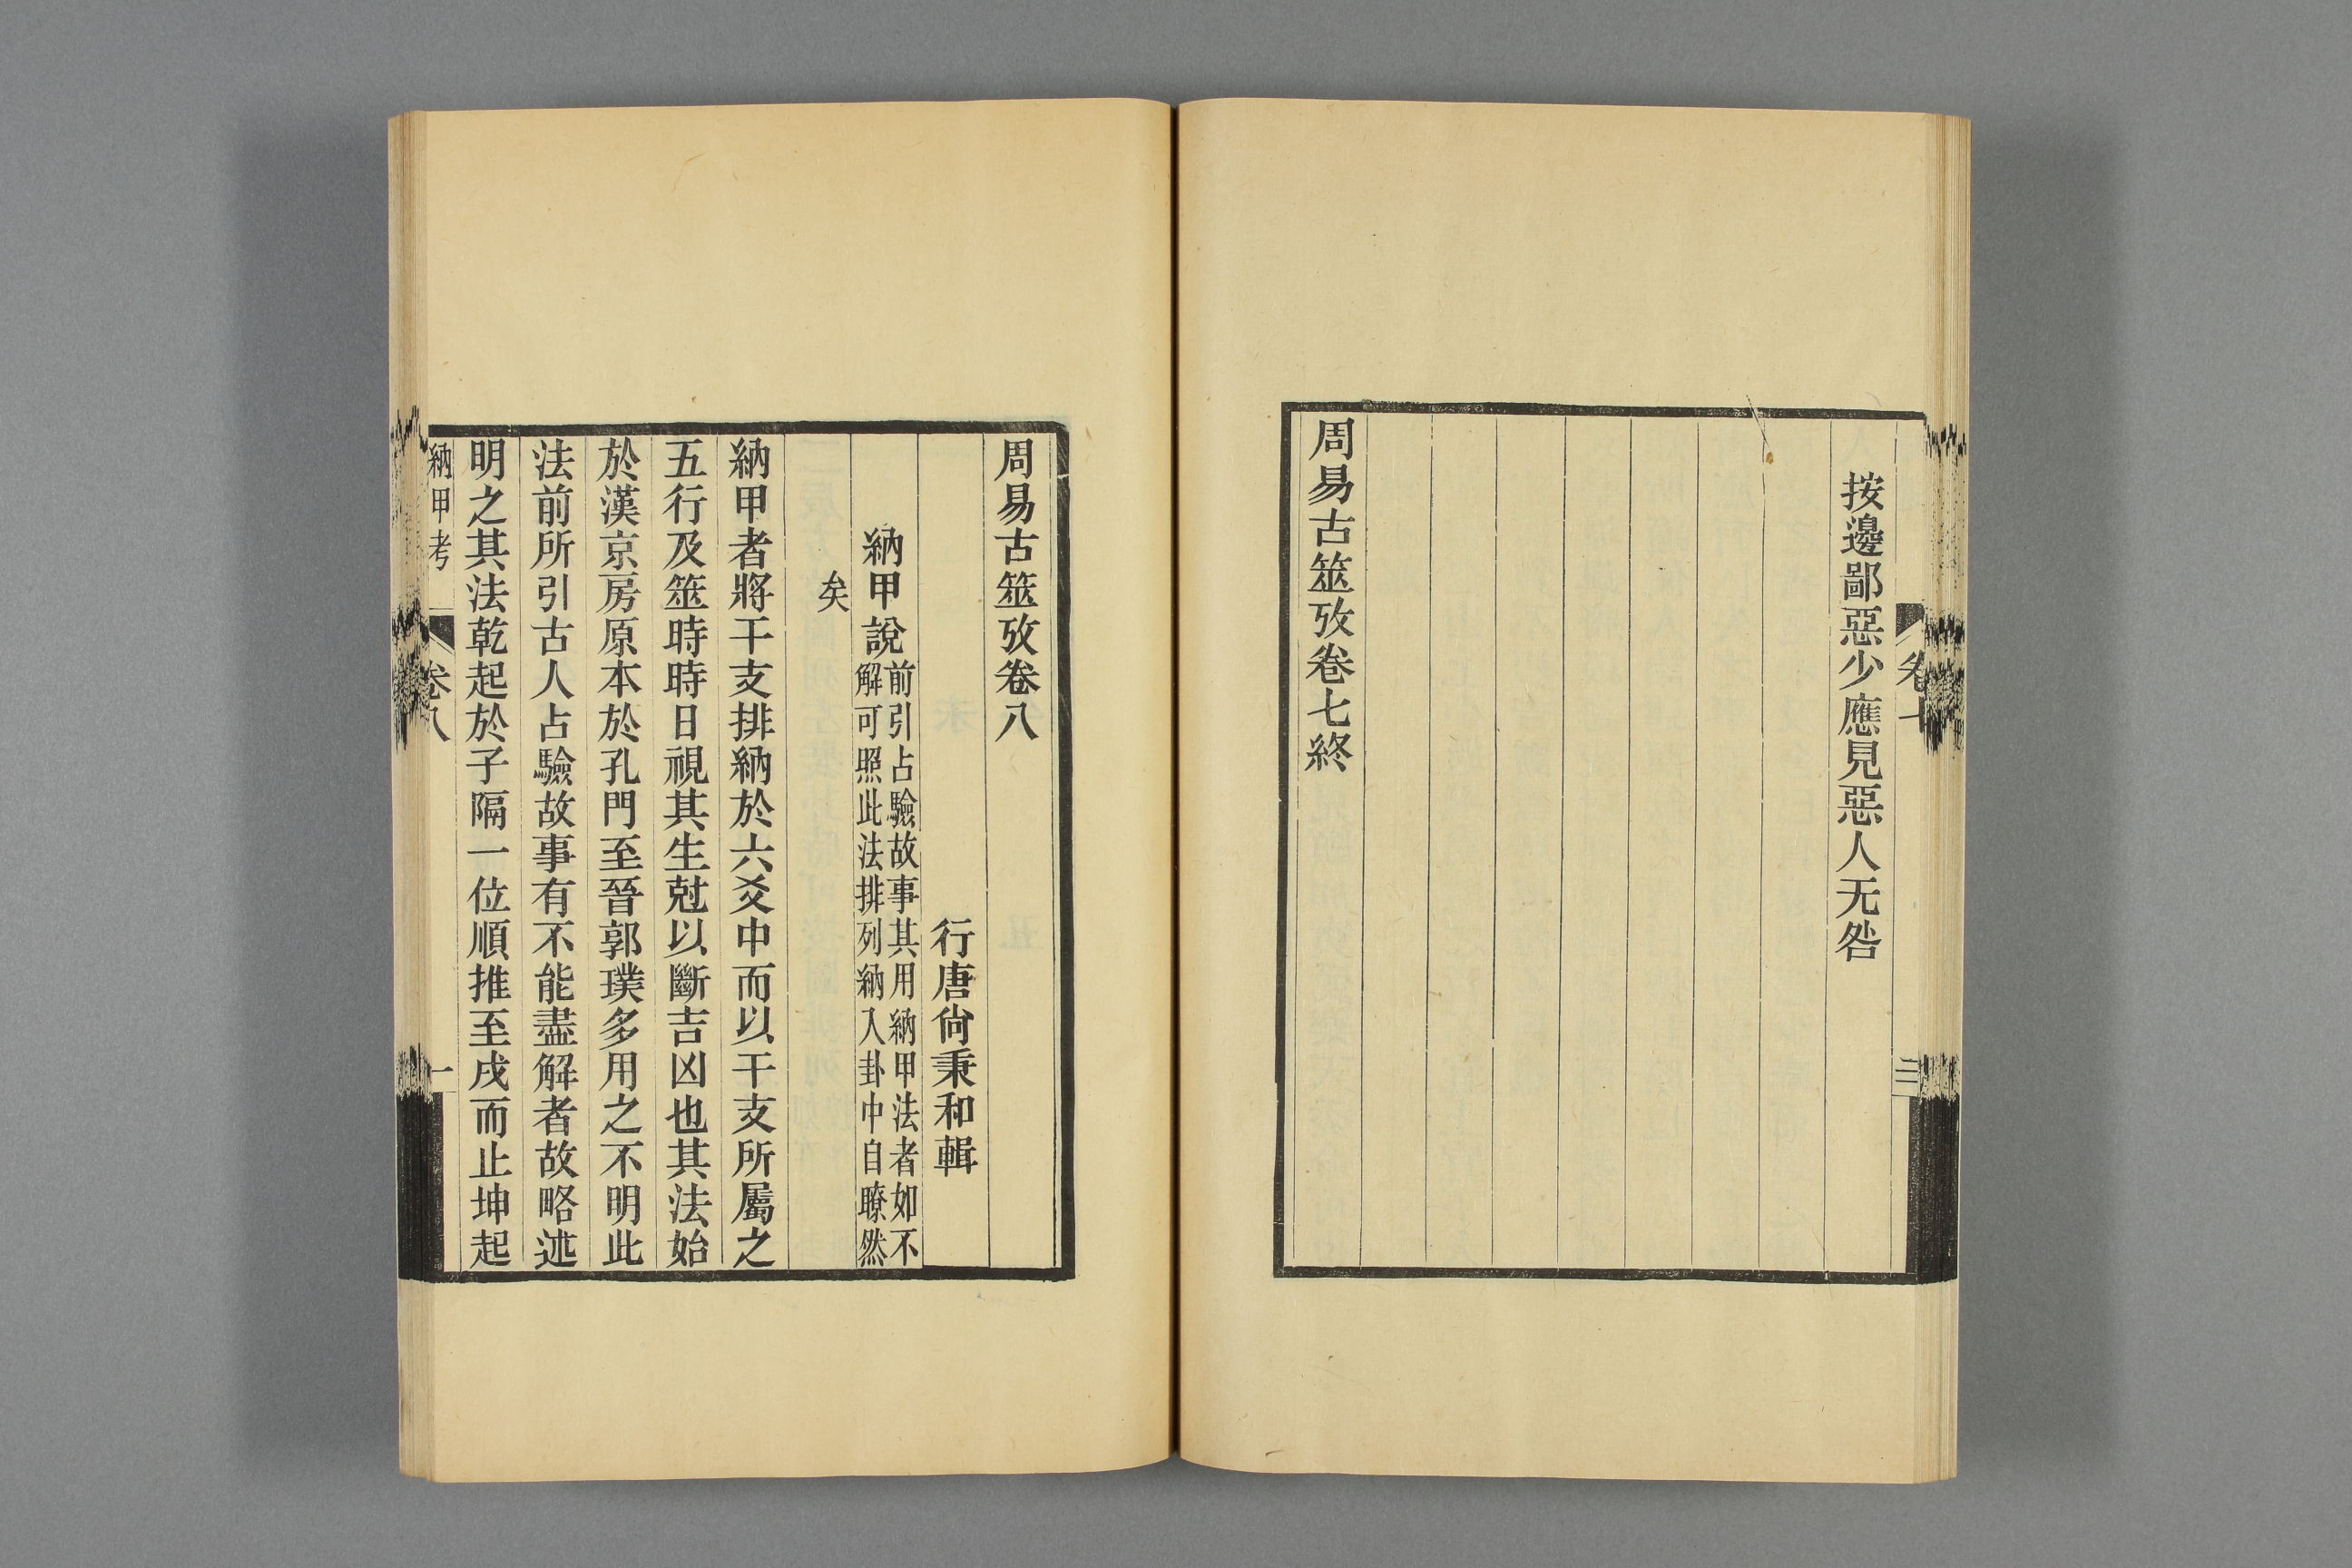 卷七
三
按邊鄙惡少應見惡人无咎
周易古筮攷卷七終
周易古筮攷卷八
行唐尙秉和輯
納甲說前引占驗故事其用納甲法者如不
解可照此法排列納入卦中自瞭然
矣
納甲者將干支排納於六爻中而以干支所屬之
五行及筮時時日視其生尅以斷吉凶也其法始
於漢京房原本於孔門至晉郭璞多用之不明此
法前所引古人占驗故事有不能盡解者故略述
明之其法乾起於子隔一位順推至戌而止坤起
納甲考
卷八
一